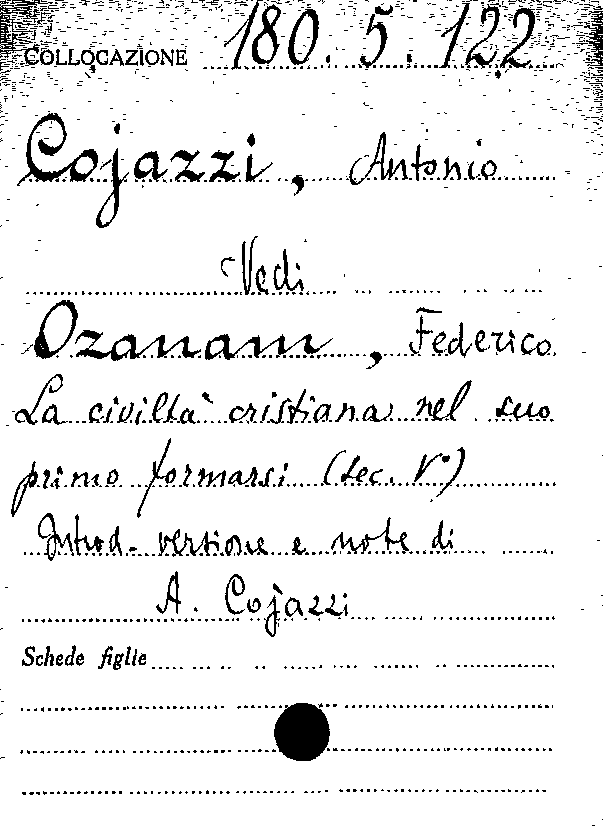 COLLOCAZIONE 180. 5. 122
Cojazzi, Antonio
Vedi
Ozanam, Federico
La civiltà cristiana nel suo
primo formarsi (sec. V°)
Introd. versione e note di
A. Cojazzi
Schede figlie